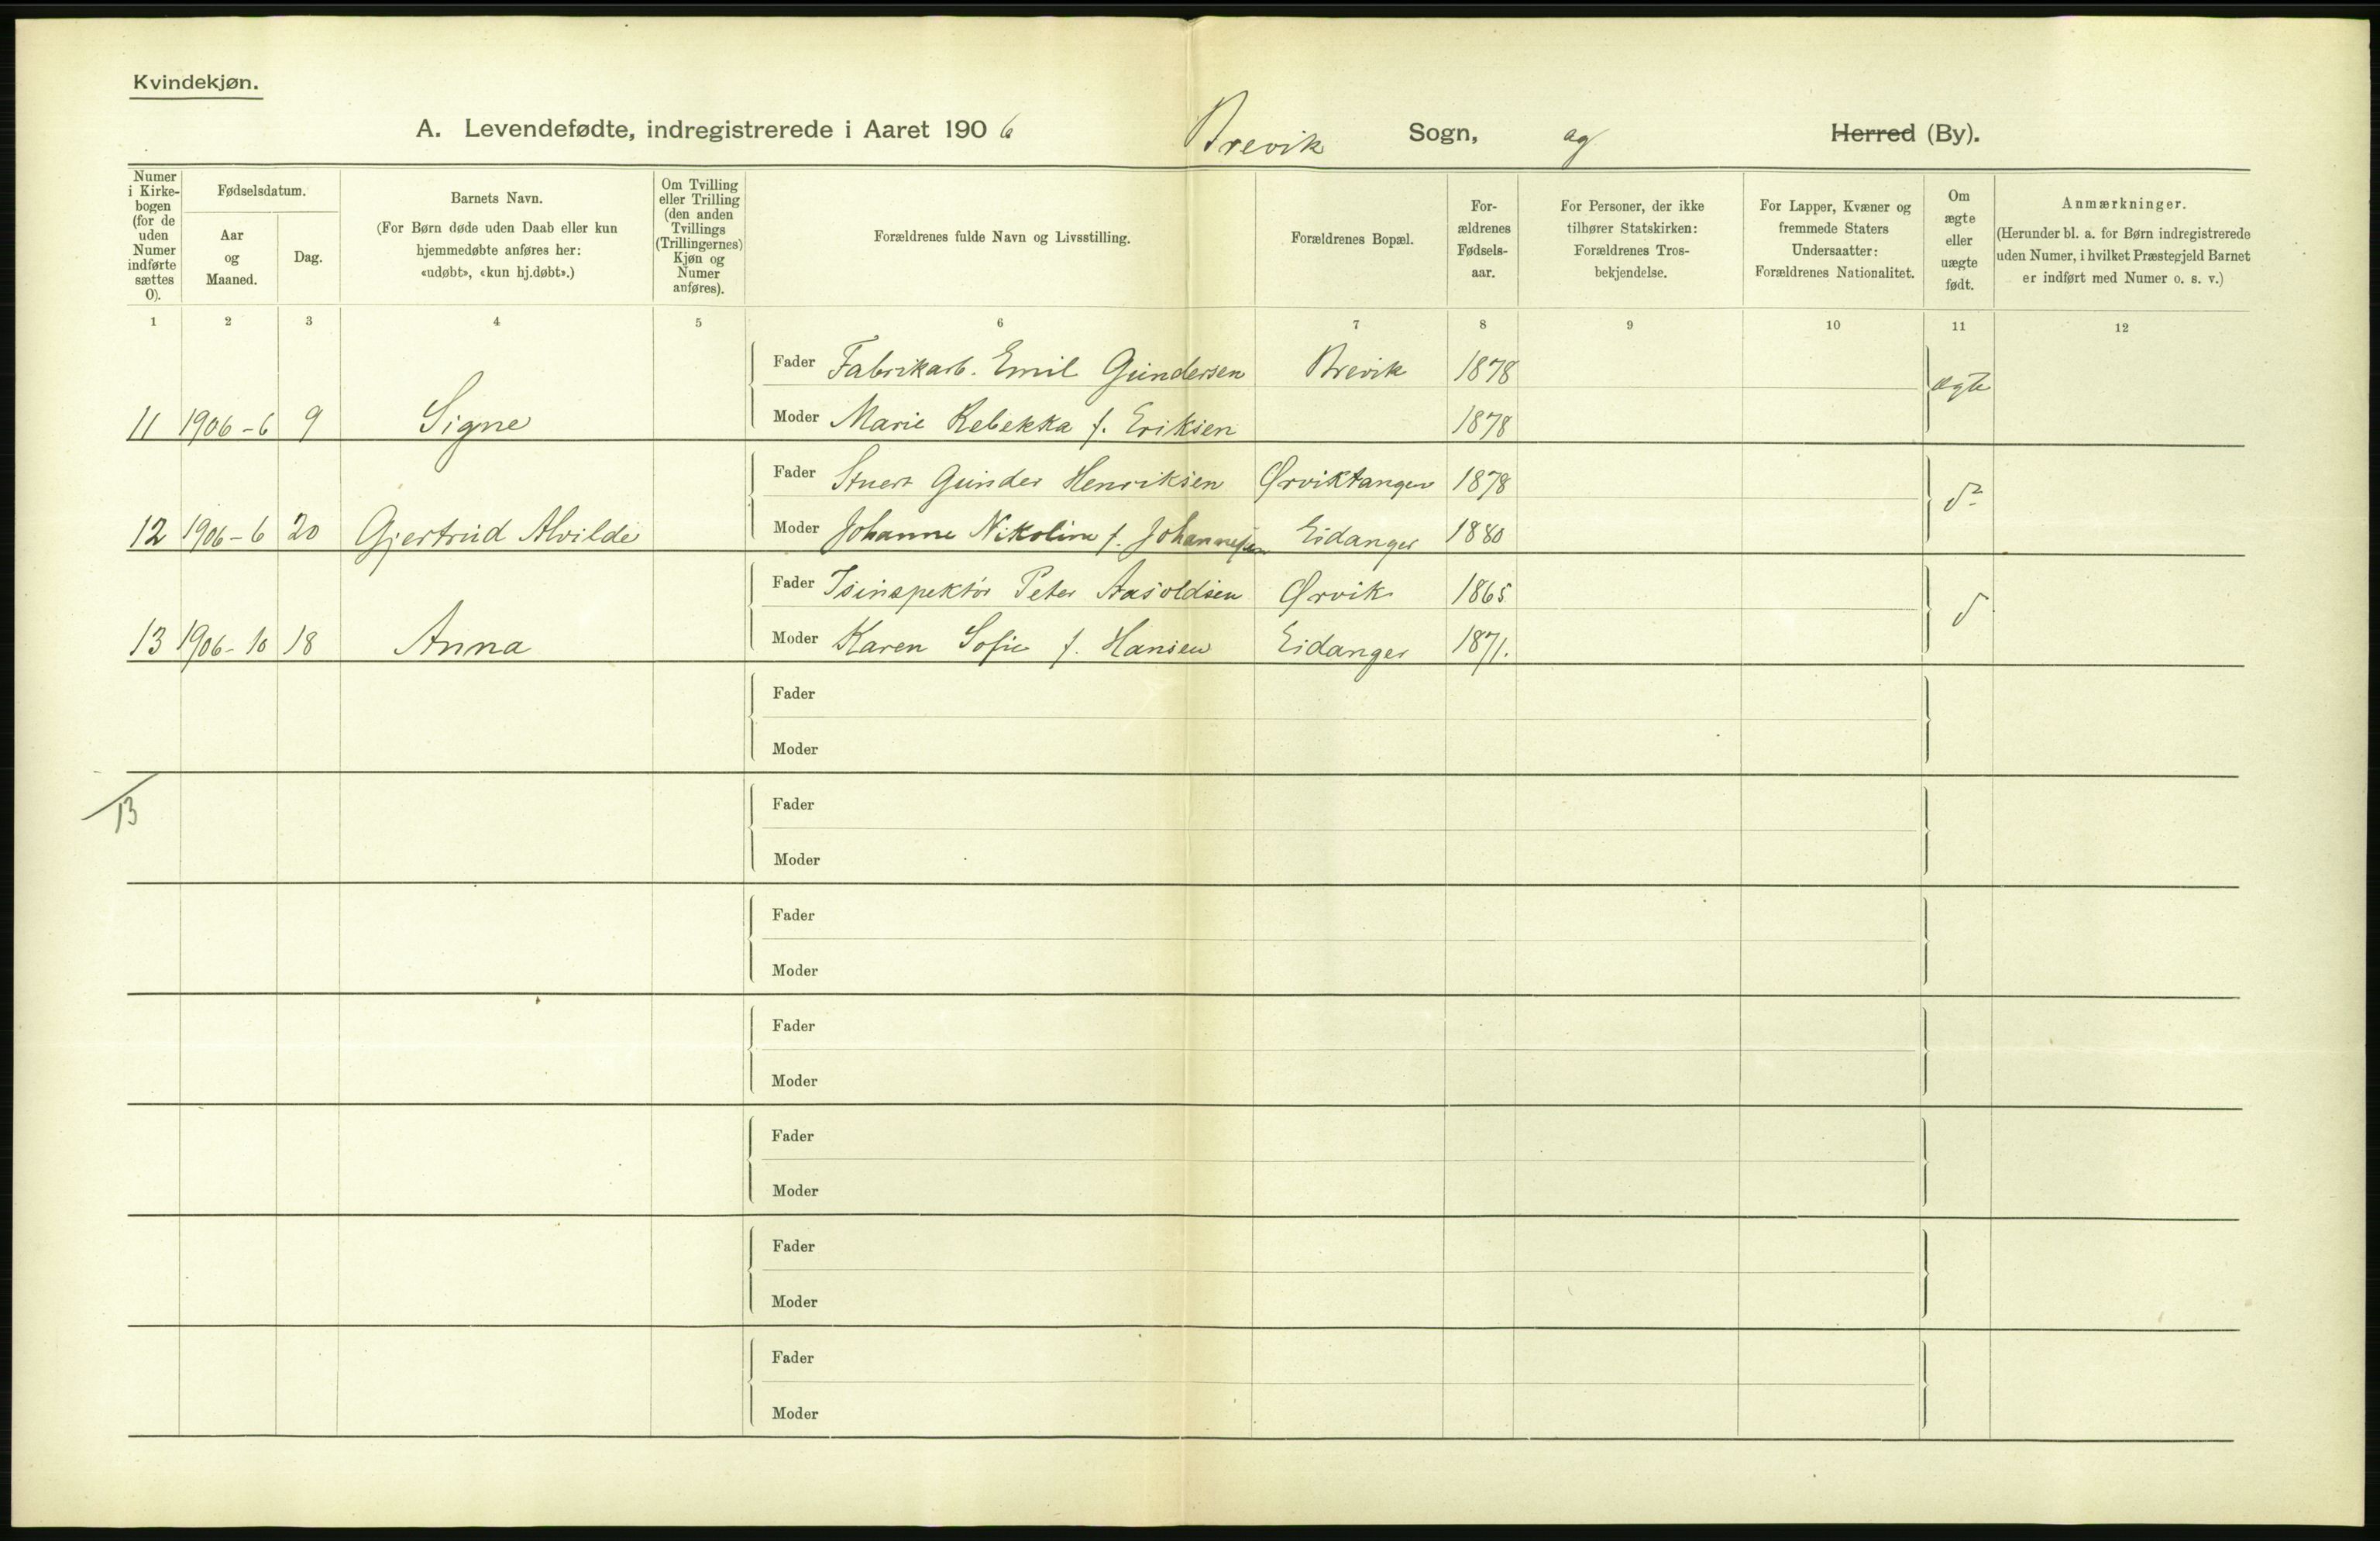 Kvindekjøn.
A. Levendefødte, indregistrerede i Aaret 1906 Brevik Sogn, og Herred (By).
Numer i Kirkebogen (for de uden Numer indførte sættes 0).
Fødselsdatum.
Aar og Maaned.
Dag.
Barnets Navn.
(For Børn døde uden Daab eller kun
hjemmedøbte anføres her:
«udøbt», «kun hj.døbt».)
Om Tvilling
eller Trilling
(den anden
Tvillings
(Trillingernes)
Kjøn og
Numer
anføres).
Forældrenes fulde Navn og Livsstilling.
Forældrenes Bopæl.
For-
ældrenes
Fødsels-
aar.
For Personer, der ikke
tilhører Statskirken:
Forældrenes Tros-
bekjendelse.
For Lapper, Kvæner og
fremmede Staters
Undersaatter:
Forældrenes Nationalitet.
Om
ægte
eller
uægte
født.
Anmærkninger.
(Herunder bl. a. for Børn indregistrerede
uden Numer, i hvilket Præstegjeld Barnet
er indført med Numer o. s. v.)
1 2 3 4 5 6 7 8 9 10 11 12
Fader Fabrikarb. Emil Gundersen Brevik 1878 ægte
11 1906-6 9 Signe Moder Marie Rebekka f. Eriksen 1878
Fader Stuert Gunder Henriksen Ørviktangen 1878
12 1906-6 20 Gjertrud Alvilde Moder Johanne Nikoline f. Johannesen Eidanger 1880
Fader Isinspektör Peter Aasoldsen Ørvik 1865
13 1906-10 18 Anna Moder Karen Sofie f. Hansen Eidanger 1871.
Fader
Moder
13
Fader
Moder
Fader
Moder
Fader
Moder
Fader
Moder
Fader
Moder
Fader
Moder